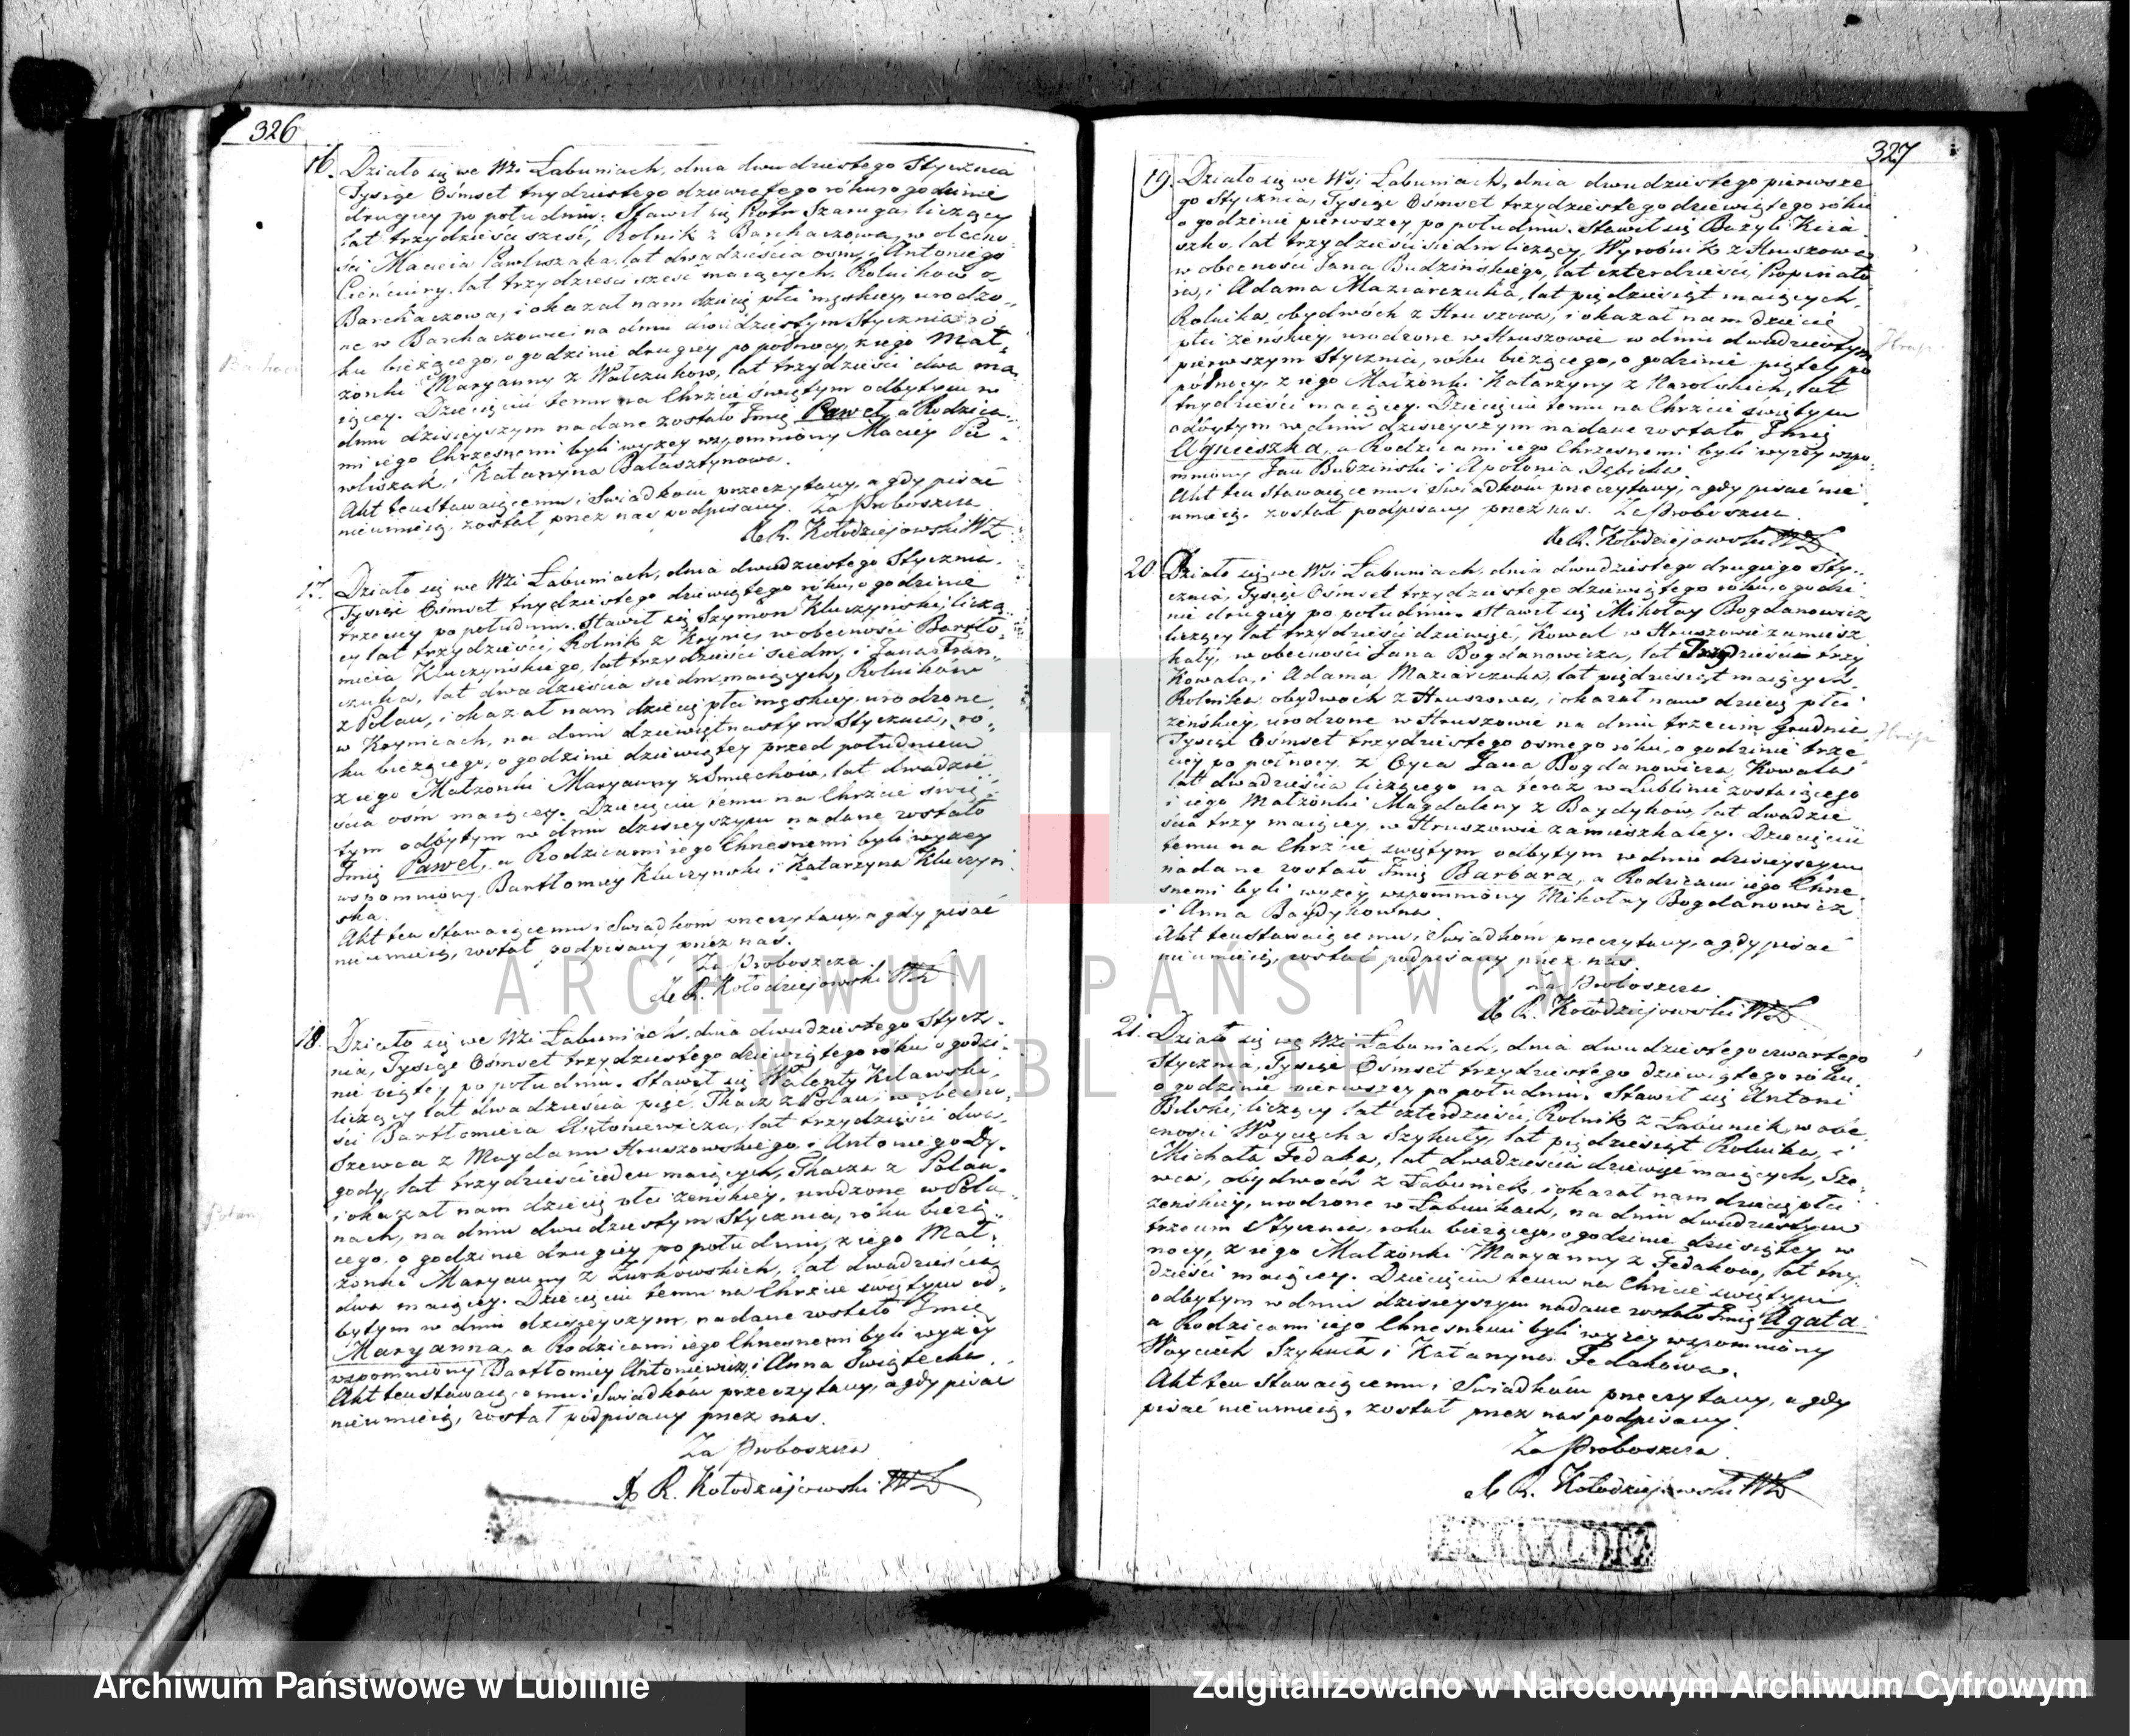 326
16. Działo się we Wsi Łabuniach, dnia dwudziestego Stycznia
Tysiąc Ośmset trzydziestego dziewiątego roku, o godzinie
drugiey po południu. Stawił się Piotr Szaruga, liczący
lat trzydzieści sześć, Rolnik z Barchaczowa, w obecno-
ści Macieia Pawliszaka, lat dwadzieścia ośm, i Antoniego
lat trzydzieści sześć maiących, Rolników z
Barchaczowa, i okazał nam dziecię płci męskiey, urodzo-
ne w Barchaczowie na dniu dwudziestym Stycznia ro-
ku bieżącego, o godzinie drugiey po północy, z iego Mał-
żonki Maryanny z Walczuków, lat trzydzieści dwa ma-
iącey. Dziecięciu temu na Chrzcie świętym odbytym w
dniu dzisieyszym nadane zostało Imię Paweł, a Rodzica-
mi iego Chrzesnemi byli wyżey wspomniony Maciey Pa-
wliszak, i Katarzyna Bałasztynowa.
Akt ten Stawaiącemu i Świadkom przeczytany, a gdy pisać
nieumieią, został przez nas podpisany. Za Proboszcza
X. R. Kołodziejowski WŁ
17. Działo się we Wsi Łabuniach, dnia dwudziestego Stycznia,
Tysiąc Ośmset trzydziestego dziewiątego roku, o godzinie
trzeciey po południu. Stawił się Szymon Kluczyński, liczą-
cy lat trzydzieści, Rolnik z Krynic, w obecności Bartło-
mieia Kluczyńskiego, lat trzydzieści siedm, i Jana Fran-
czuka, lat dwadzieścia siedm maiących, Rolników
z Polan, i okazał nam dziecię płci męskiey, urodzone
w Krynicach, na dniu dziewiętnastym Stycznia, ro-
ku bieżącego, o godzinie dziewiątey przed południem
z iego Małżonki Maryanny z Smiechów, lat dwadzie-
ścia ośm maiącey. Dziecięciu temu na Chrzcie świę-
tym odbytym w dniu dzisieyszym nadane zostało
Imię Paweł, a Rodzicami iego Chrzesnemi byli wyżey
wspomniony Bartłomiey Kluczynski i Katarzyna Kluczyń-
ska.
Akt ten Stawaiącemu i Świadkom przeczytany, a gdy pisać
nieumieią, został podpisany przez nas.
Za Proboszcza
X. R. Kołodziejowski WŁ
18. Działo się we Wsi Łabuniach, dnia dwudziestego Stycz-
nia, Tysiąc Ośmset trzydziestego dziewiątego roku o godzi-
nie piątey po południu. Stawił się Walenty Kulawski,
liczący lat dwadzieścia pięć, Tkacz z Polan, w obecno-
ści Bartłomieia Antoniewicza, lat trzydzieści dwa,
Szewca z Maydanu Hruszowskiego i Antoniego Dy-
gody, lat trzydzieści ieden maiących, Tkacza z Polan,
i okazał nam dziecię płci żeńskiey, urodzone w Pola-
nach, na dniu dwudziestym Stycznia, roku bieżą-
cego, o godzinie drugiey po południu, z iego Mał-
żonki Maryanny z Żurkowskich, lat dwadzieścia
dwa maiącey. Dziecięciu temu na Chrzcie świętym od-
bytym w dniu dzisieyszym nadane zostało Imię
Maryanna, a Rodzicami iego Chrzesnemi byli wyżey
wspomniony Bartłomiey Antoniewicz, i Anna Świątecka.
Akt ten Stawaiącemu i Świadkom przeczytany, a gdy pisać
nieumieią, został podpisany przez nas.
Za Proboszcza
X R. Kołodziejowski WŁ
327
19. Działo się we Wsi Łabuniach, dnia dwudziestego pierwsze-
go Stycznia, Tysiąc Ośmset trzydziestego dziewiątego roku
o godzinie pierwszey po południu. Stawił się Bazyli Kira-
szko, lat trzydzieści siedm liczący, Wyrobnik z Hruszowa
w obecności Jana Budzińskiego, lat czterdzieści, Propinato-
ra, i Adama Maziarczuka, lat pięćdziesiąt maiących,
Rolnika, obydwóch z Hruszowa, i okazał nam dziecię
płci żeńskiey, urodzone w Hruszowie w dniu dwudziestym
pierwszym Stycznia, roku bieżącego, o godzinie piątey po
północy, z iego Małżonki Katarzyny z Karolskich, lat
trzydzieści maiącey. Dziecięciu temu na Chrzcie świętym
odbytym w dniu dzisieyszym nadane zostało Imię
Agnieszka, a Rodzicami iego Chrzesnemi byli wyżey wspo-
mniony Jan Budzinski i Apolonia Dębicka.
Akt ten Stawaiącemu i Świadkom przeczytany, a gdy pisać nie
umieią, został podpisany przez nas. Za Proboszcza
X R. Kołodziejowski WŁ
20 Działo się we Wsi Łabuniach, dnia dwudziestego drugiego Sty-
cznia, Tysiąc Ośmset trzydziestego dziewiątego roku, o godzi-
nie drugiey po południu. Stawił się Mikołay Bogdanowicz
liczący lat trzydzieści dziewięć, Kowal w Hruszowie zamiesz-
kały, w obecności Jana Bogdanowicza, lat Trzydzieści trzy
Kowala, i Adama Maziarczuka, lat pięćdziesiąt maiących,
Rolnika, obydwóch z Hruszowa, i okazał nam dziecię płci
żeńskiey, urodzone w Hruszowie na dniu trzecim Grudnia
Tysiąc Ośmset trzydziestego osmego roku, o godzinie trze-
ciey po północy, z Oyca Jana Bogdanowicza, Kowala
lat dwadzieścia liczącego na teraz w Lublinie zostaiącego
i iego Małżonki Magdaleny z Baydyków, lat dwadzie-
ścia trzy maiącey, w Hruszowie zamieszkałey. Dziecięciu
temu na Chrzcie świętym odbytym w dniu dzisieyszym
nadane zostało Imię Barbara, a Rodzicami iego Chrze-
snemi byli wyżey wspomniony Mikołay Bogdanowicz
i Anna Baydykowna.
Akt ten Stawaiącemu i Świadkom przeczytany, a gdy pisać
nieumieią, został podpisany przez nas
Za Proboszcza
X R. Kołodziejowski WŁ
21. Działo się we Wsi Łabuniach, dnia dwudziestego czwartego
Stycznia, Tysiąc Ośmset trzydziestego dziewiątego roku,
o godzinie pierwszey po południu. Stawił się Antoni
Bilski, liczący lat czterdzieści, Rolnik z Łabuniek, w obe-
cności Woyciecha Szykuły, lat pięćdziesiąt Rolnika, i
Michała Fedaka, lat dwadzieścia dziewięć maiących, Sze-
wca, obydwóch z Łabuniek, i okazał nam dziecię płci
żeńskiey, urodzone w Łabuńkach, na dniu dwudziestym
trzecim Stycznia, roku bieżącego, o godzinie dziesiątey w
nocy, z iego Małżonki Maryanny z Fedaków, lat trzy-
dzieści maiącey. Dziecięciu temu na Chrzcie świętym
odbytym w dniu dzisieyszym nadane zostało Imię Agata
a Rodzicami iego Chrzesnemi byli wyżey wspomniony
Woyciech Szykuła i Katarzyna Fedakowa.
Akt ten Stawaiącemu i Świadkom przeczytany, a gdy
pisać nieumieią, został przez nas podpisany.
Za Proboszcza
X R. Kołodziejowski WŁ
ARCHIWUM PAŃSTWOWE
W LUBLINIE
Archiwum Państwowe w Lublinie
Zdigitalizowano w Narodowym Archiwum Cyfrowym